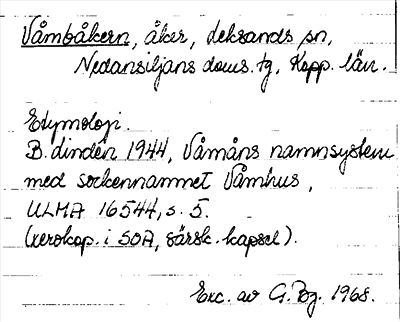 Våmbåkern, åker, Leksands sn,
Nedansiljans doms. tg, Kopp. län.
Etymologi.
B. Lindén 1944, Våmåns namnsystem
med sockennamnet Våmhus,
ULMA 16544, s. 5.
(xerokop. i SOA, särsk. kapsel).
Exc. av G. Bg. 1968.